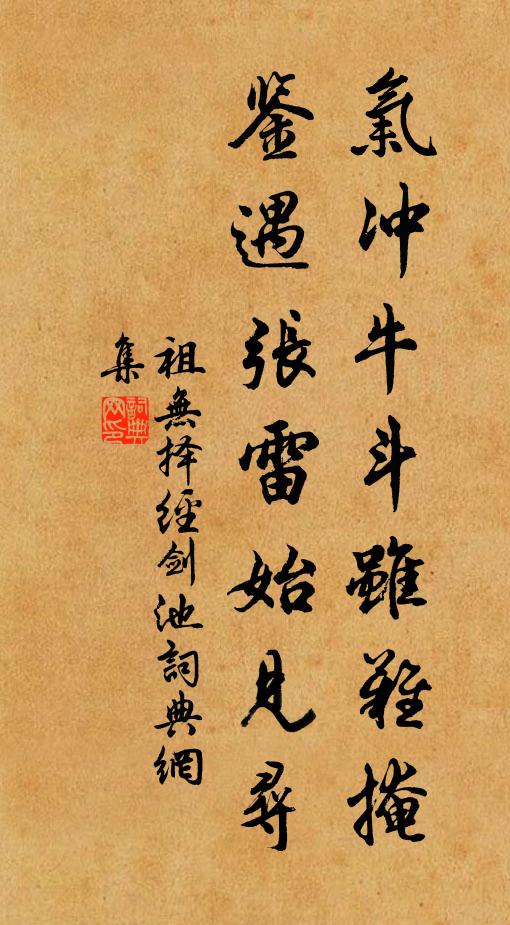 氣冲牛斗雖難掩
鉴遇張雷始見尋
祖無择經劍池詞典網
集
詞典网印